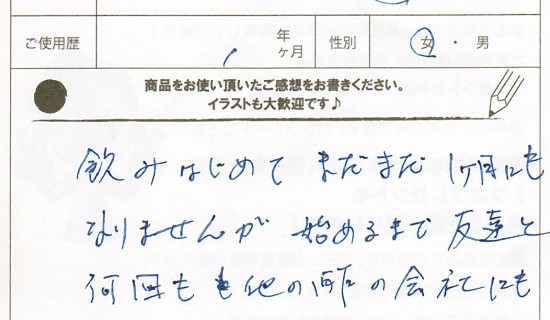 ご使用歴
1
年
ヶ月
性別
女・男
商品をお使い頂いたご感想をお書きください。
イラストも大歓迎です♪
飲みはじめてまだまだ1ヶ月にも
なりませんが 始めるまで友達と
何回も他の所の会社にも